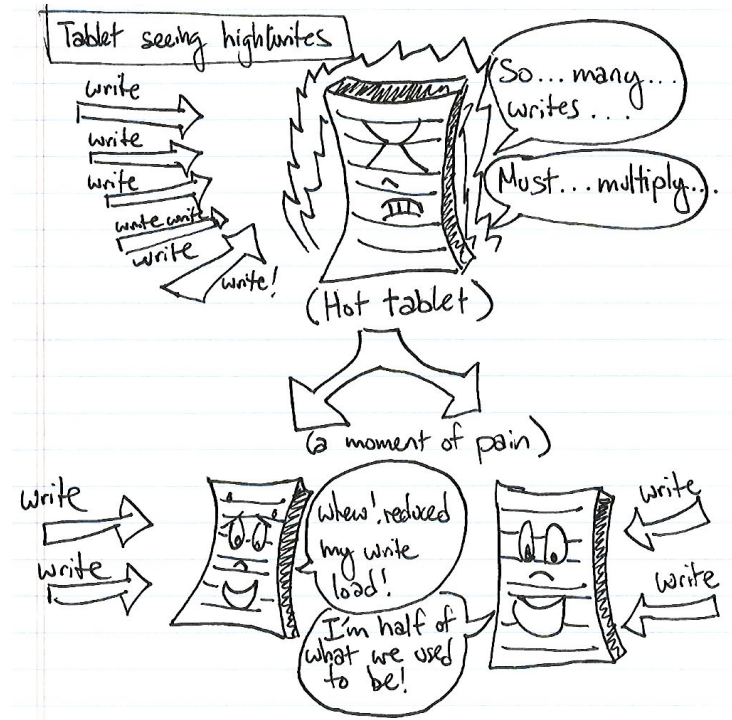 Tablet seeing high writes
write
write
write
write write
write
write!
So...many...
writes...
Must...multiply...
(Hot tablet)
(a moment of pain)
write
write
whew! reduced
my write
load!
I'm half of
what we used
to be!
write
write